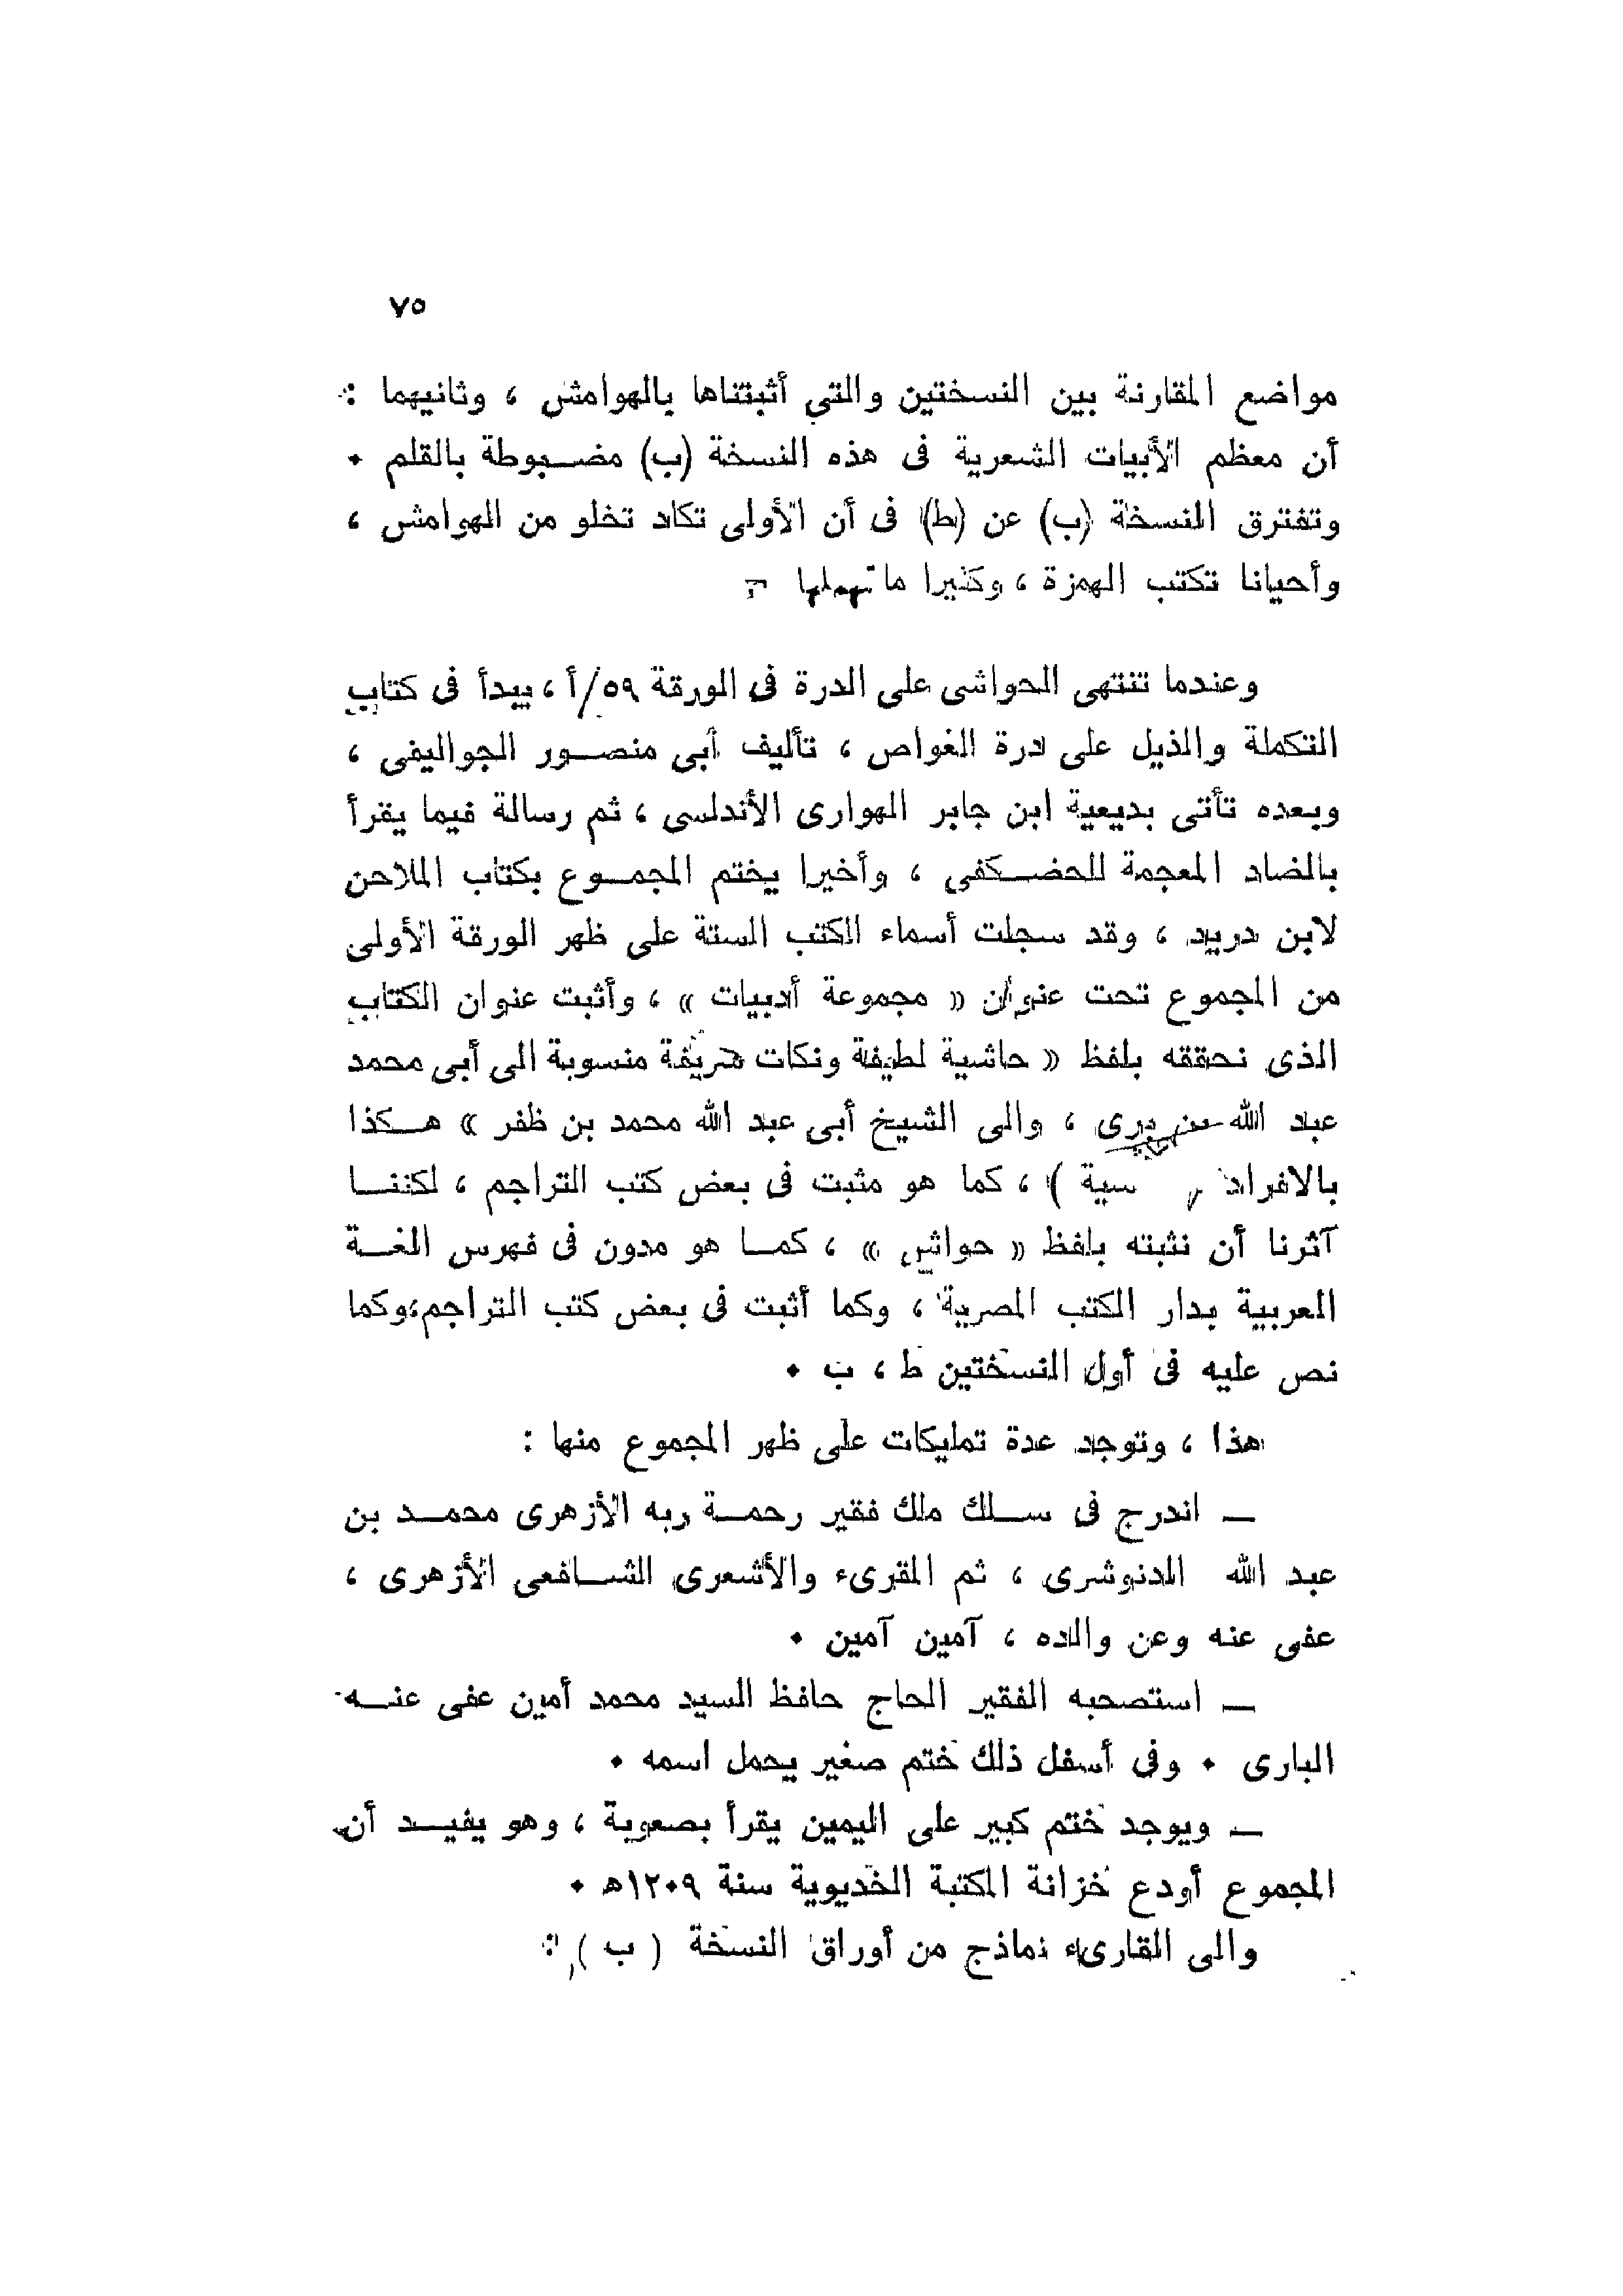 ٧٥
مواضع المقارنة بين النسختين والتي أثبتناها بالهوامش ، وثانيهما :
أن معظم الأبيات الشعرية فى هذه النسخة (ب) مضبوطة بالقلم ٠
وتفترق النسخة (ب) عن (ط) فى أن الأولى تكاد تخلو من الهوامش ،
وأحيانا تكتب الهمزة ، وكثيرا ما تهملها
وعندما تنتهى الحواشى على الدرة فى الورقة ٥٩/أ ، يبدأ فى كتاب
التكملة والذيل على درة الغواص ، تأليف أبى منصور الجواليفى ،
وبعده تأتى بديعية ابن جابر الهوارى الأندلسى ، ثم رسالة فيما يقرأ
بالضاد المعجمة للحضكفى ، وأخيرا يختم المجموع بكتاب الملاحن
لابن دريد ، وقد سجلت أسماء الكتب الستة على ظهر الورقة الأولى
من المجموع تحت عنوان « مجموعة أدبيات » ، وأثبت عنوان الكتاب
الذى نحققه بلفظ « حاشية لطيفة ونكات شريفة منسوبة الى أبى محمد
عبد الله بن برى ، والى الشيخ أبى عبد الله محمد بن ظفر » هكذا
بالافراد سية ) ، كما هو مثبت فى بعض كتب التراجم ، لكننا
آثرنا أن نثبته بلفظ « حواش » ، كما هو مدون فى فهرس اللغة
العربية بدار الكتب المصرية ، وكما أثبت فى بعض كتب التراجم،وكما
نص عليه فى أول النسختين ط ، ب ٠
هذا ، وتوجد عدة تمليكات على ظهر المجموع منها :
ــ اندرج فى سلك ملك فقير رحمة ربه الأزهرى محمد بن
عبد الله الدنوشرى ، ثم المقرىء والأشعرى الشافعى الأزهرى ،
عفى عنه وعن والده ، آمين آمين ٠
ــ استصحبه الفقير الحاج حافظ السيد محمد أمين عفى عنه
البارى ٠ وفى أسفل ذلك ختم صغير يحمل اسمه ٠
ــ ويوجد ختم كبير على اليمين يقرأ بصعوبة ، وهو يفيد أن
المجموع أودع خزانة المكتبة الخديوية سنة ١٢٠٩هـ ٠
والى القارىء نماذج من أوراق النسخة ( ب ) :